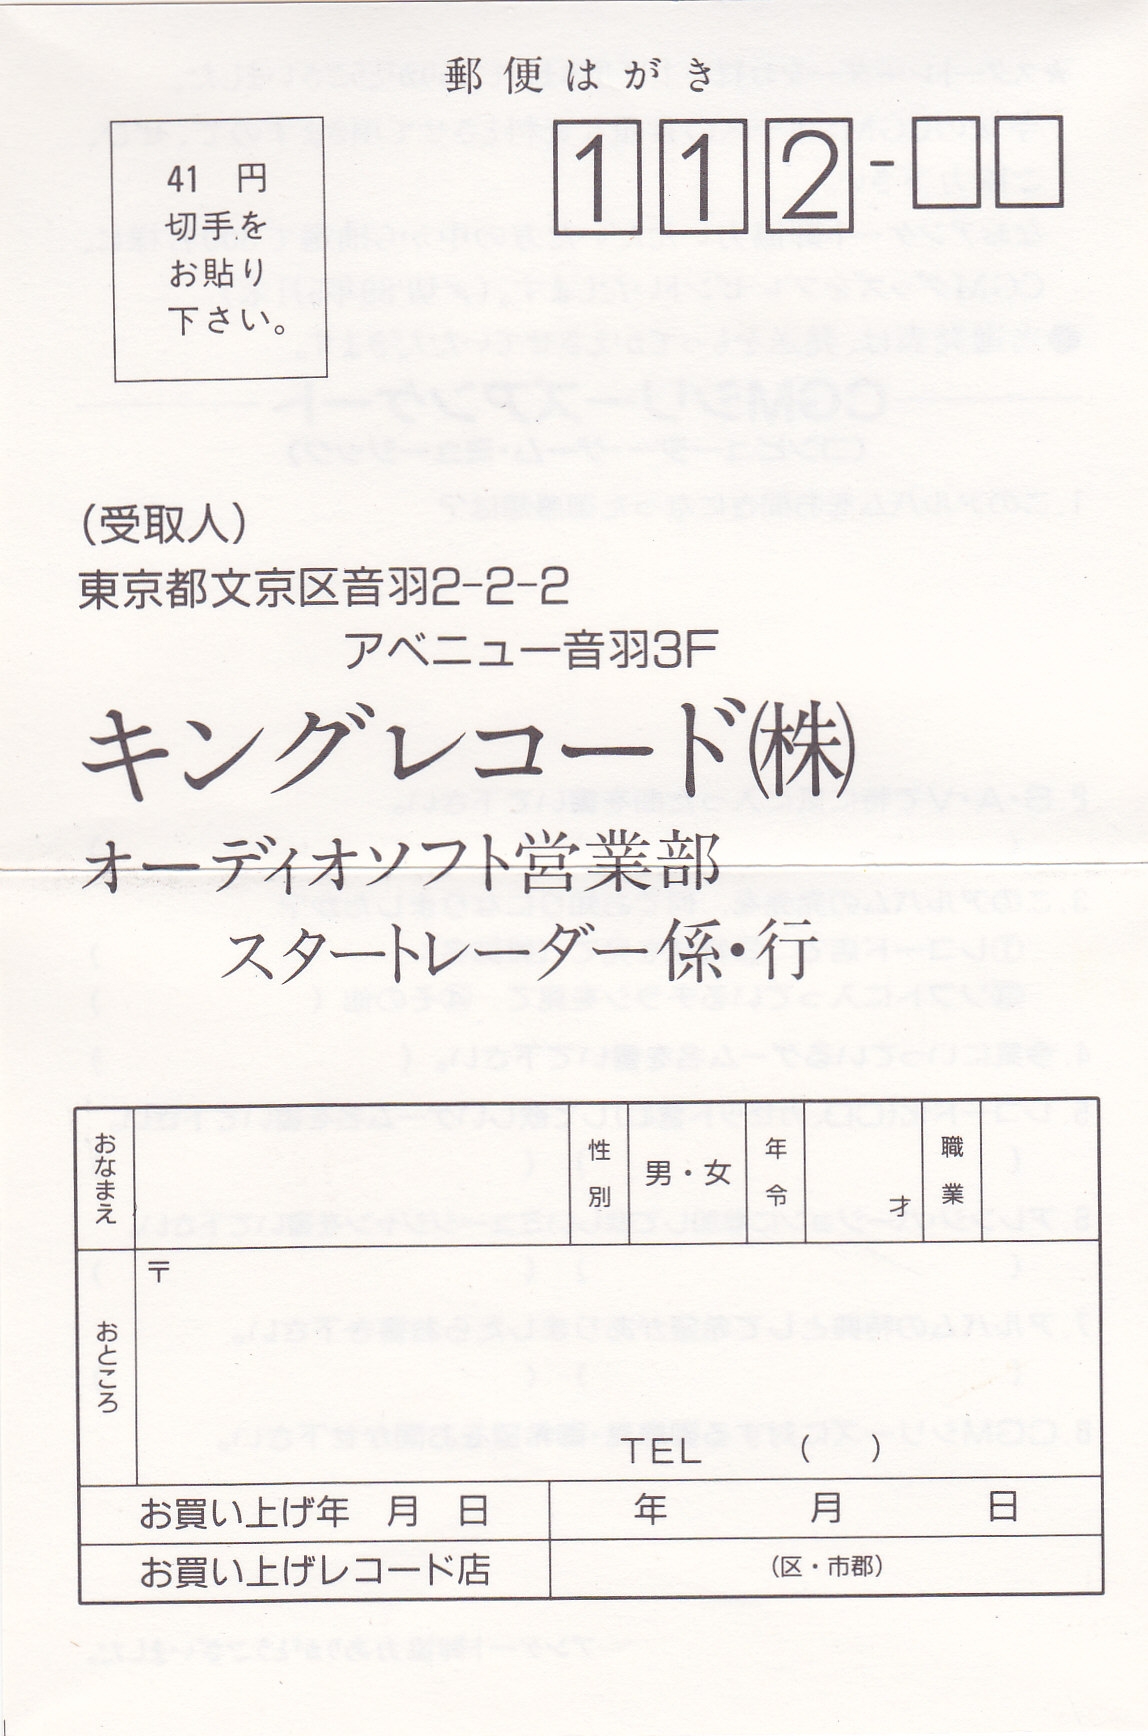 郵便はがき
112-
41 円
切手を
お貼り
下さい。
(受取人)
東京都文京区音羽2-2-2
アベニュー音羽3F
キングレコード㈱
オーディオソフト営業部
スタートレーダー係・行
おなまえ
性別
男・女
年令
才
職業
おところ
〒
TEL ( )
お買い上げ年 月 日
年 月 日
お買い上げレコード店
(区・市郡)